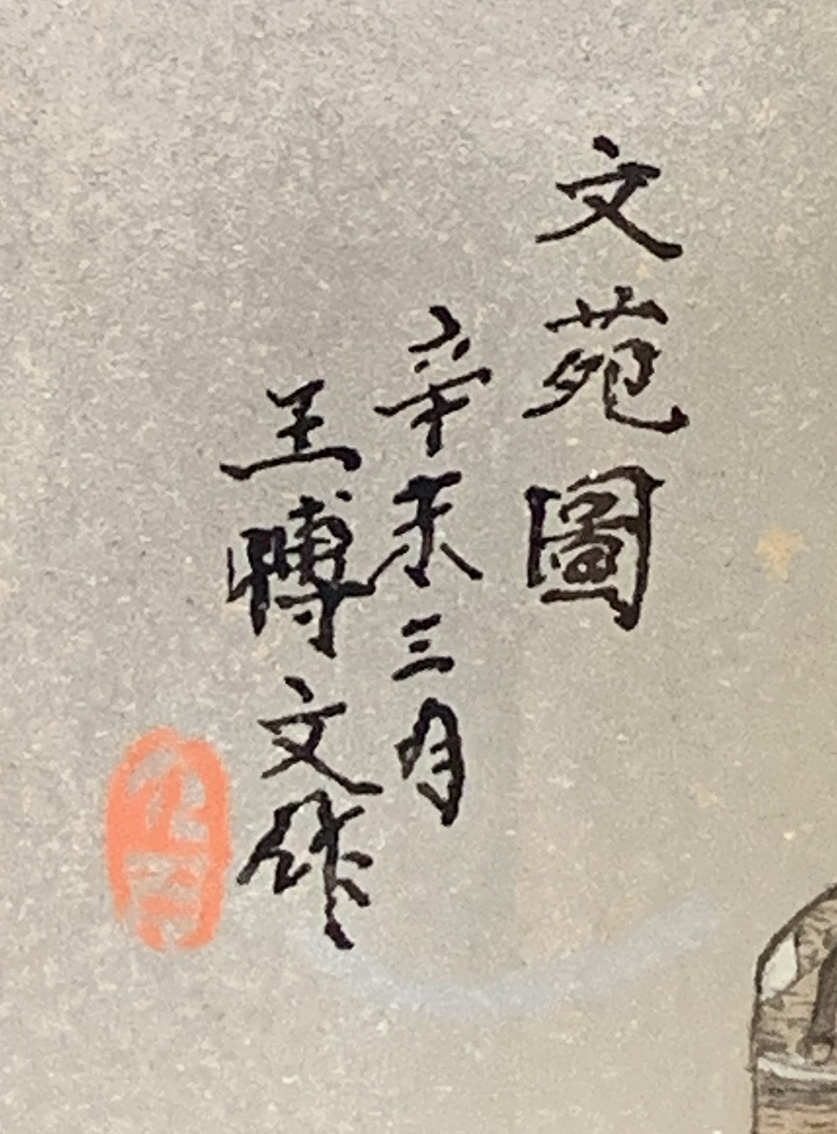 文苑圖
辛未三月
王博文作